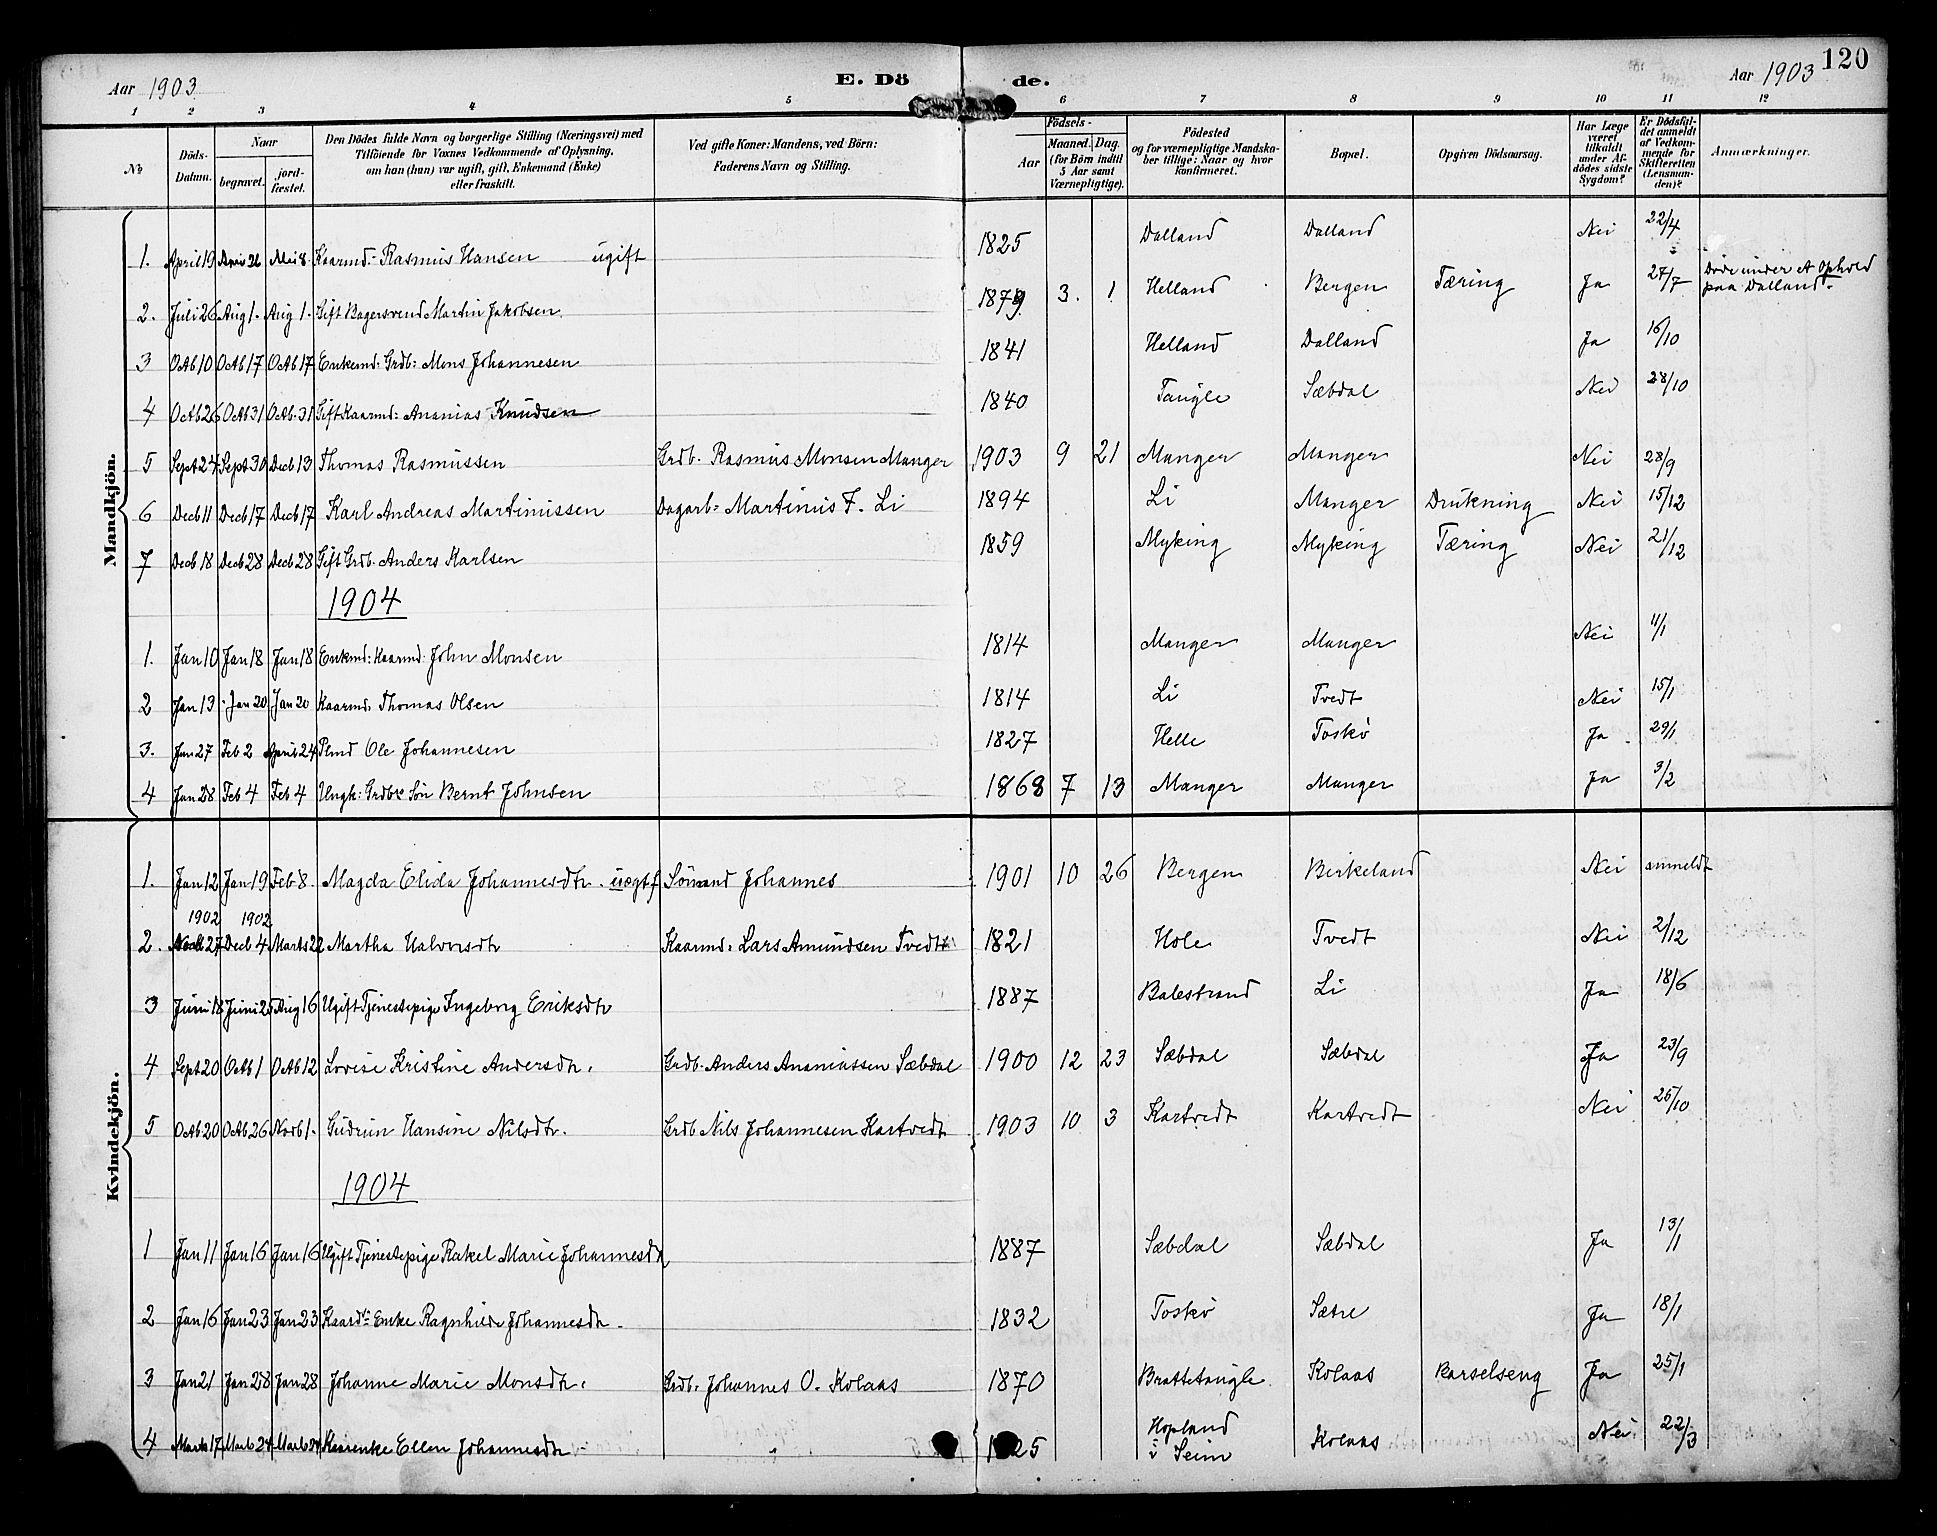 120
Aar 1903 E. Dö de. Aar 1903
1 2 3 4 5 6 7 8 9 10 11 12
№ Döds-Datum. Naar begravet. jord-fæstet. Den Dödes fulde Navn og borgerlige Stilling (Næringsvei) med Tilföiende for Voxnes Vedkommende af Oplysning, om han (hun) var ugift, gift, Enkemand (Enke) eller fraskilt. Ved gifte Koner: Mandens, ved Börn: Faderens Navn og Stilling. Födsels- Aar Maaned. Dag. (for Börn indtil 5 Aar samt Værnepligtige). Födested og for værnepligtige Mandskaber tillige: Naar og hvor konfirmeret. Bopæl. Opgiven Dödsaarsag. Har Læge været tilkaldt under Afdödes sidste Sygdom? Er Dödsfaldet anmeldt af Vedkommende for Skifteretten (Lensmanden)? Anmærkninger.
Mandkjön.
1. April 19 Mai 8 Kaarmd:- Rasmus Hansen ugift 1825 Dalland Dalland Nei 22/4
2. Juli 26 Aug 1. Aug 1. Gift Bagersvend Martin Jakobsen 1879 3. 1 Helland Bergen Tæring Ja 27/7 Döde under et Ophold paa Dalland.
3 Octb 10 Octb 17 Octb 17 Enkemd: Grdb: Mons Johannesen 1841 Helland Dalland Ja 16/10
4 Octb 26 Octb 31 Octb. 31 Gift Kaarmd: Ananias Knudsen 1840 Tangle Sæbdal Nei 28/10
5 Sept 24 Sept 30 Decb 13 Thomas Rasmussen Grdb. Rasmus Monsen Manger 1903 9 21 Manger Manger Nei 28/9
6 Decb 11 Decb 17 Decb 17 Karl Andreas Martinussen Dagarb: Martinus F. Li 1894 Li Manger Drukning Nei 15/12
7 Decb 18 Decb 28 Decb 28 Gift Grdb. Anders Karlsen 1859 Myking Myking Tæring Nei 21/12
1904
1. Jan 10 Jan 18 Jan 18 Enkmd: Kaarmd: John Monsen 1814 Manger Manger Nei 11/1
2 Jan 13 Jan 20 Jan 20 Kaarmd: Thomas Olsen 1814 Li Tvedt Nei 15/1
3. Jan 27 Feb 2 April 24 Plmd Ole Johannesen 1827 Helle Toskö Ja 29/1
4 Jan 28 Feb 4 Feb 4 Ungk: Grdbr Søn Bernt Johnsen 1868 7 13 Manger Manger Ja 3/2
Kvindekjön.
1. Jan 12 Jan 19 Feb 8. Magda Elida Johannesdtr. uægtf Sømand Johannes 1901 10 26 Bergen Birkeland Nei anmeldt
1902 1902
2. 27 Decb 4 Marts 22 Martha Halvorsdtr Kaarmd: Lars Amundsen Tvedt 1821 Hole Tvedt Nei 2/12
3 Juni 18 Juni 25 Aug 16 Ugift Tjenestepige Ingeborg Eriksdtr 1887 Balestrand Li Ja 18/6
4 Sept 20 Octb 1 Octb 12 Lovise Kristine Andersdtr. Grdb. Anders Ananiassen Sæbdal 1900 12 23 Sæbdal Sæbdal Ja 23/9
5 Octb 20 Octb 26 Novb 1. Gudrun Hansine Nilsdtr. Grdb Nils Johannesen Kartvedt 1903 10 3 Kartvedt Kartvedt Nei 25/10
1904
1 Jan 11 Jan 16 Jan 16 Ugift Tjenestepige Rakel Marie Johannesdtr 1887 Sæbdal Sæbdal Ja 13/1
2 Jan 16 Jan 23 Jan 23 Kaard:- Enke Ragnhilde Johannesdtr. 1832 Toskö Sætre Ja 18/1
3 Jan 21 Jan 28 Jan 28 Johanne Marie Monsdtr. Grdb. Johannes O. Kolaas 1870 Brattetangle Kolaas Barselseng Ja 25/1
4 Marts 17 Marts 24 Marts 24 Kaarenke Ellen Johannesdtr 25 Hopland i Seim Kolaas Nei 22/3